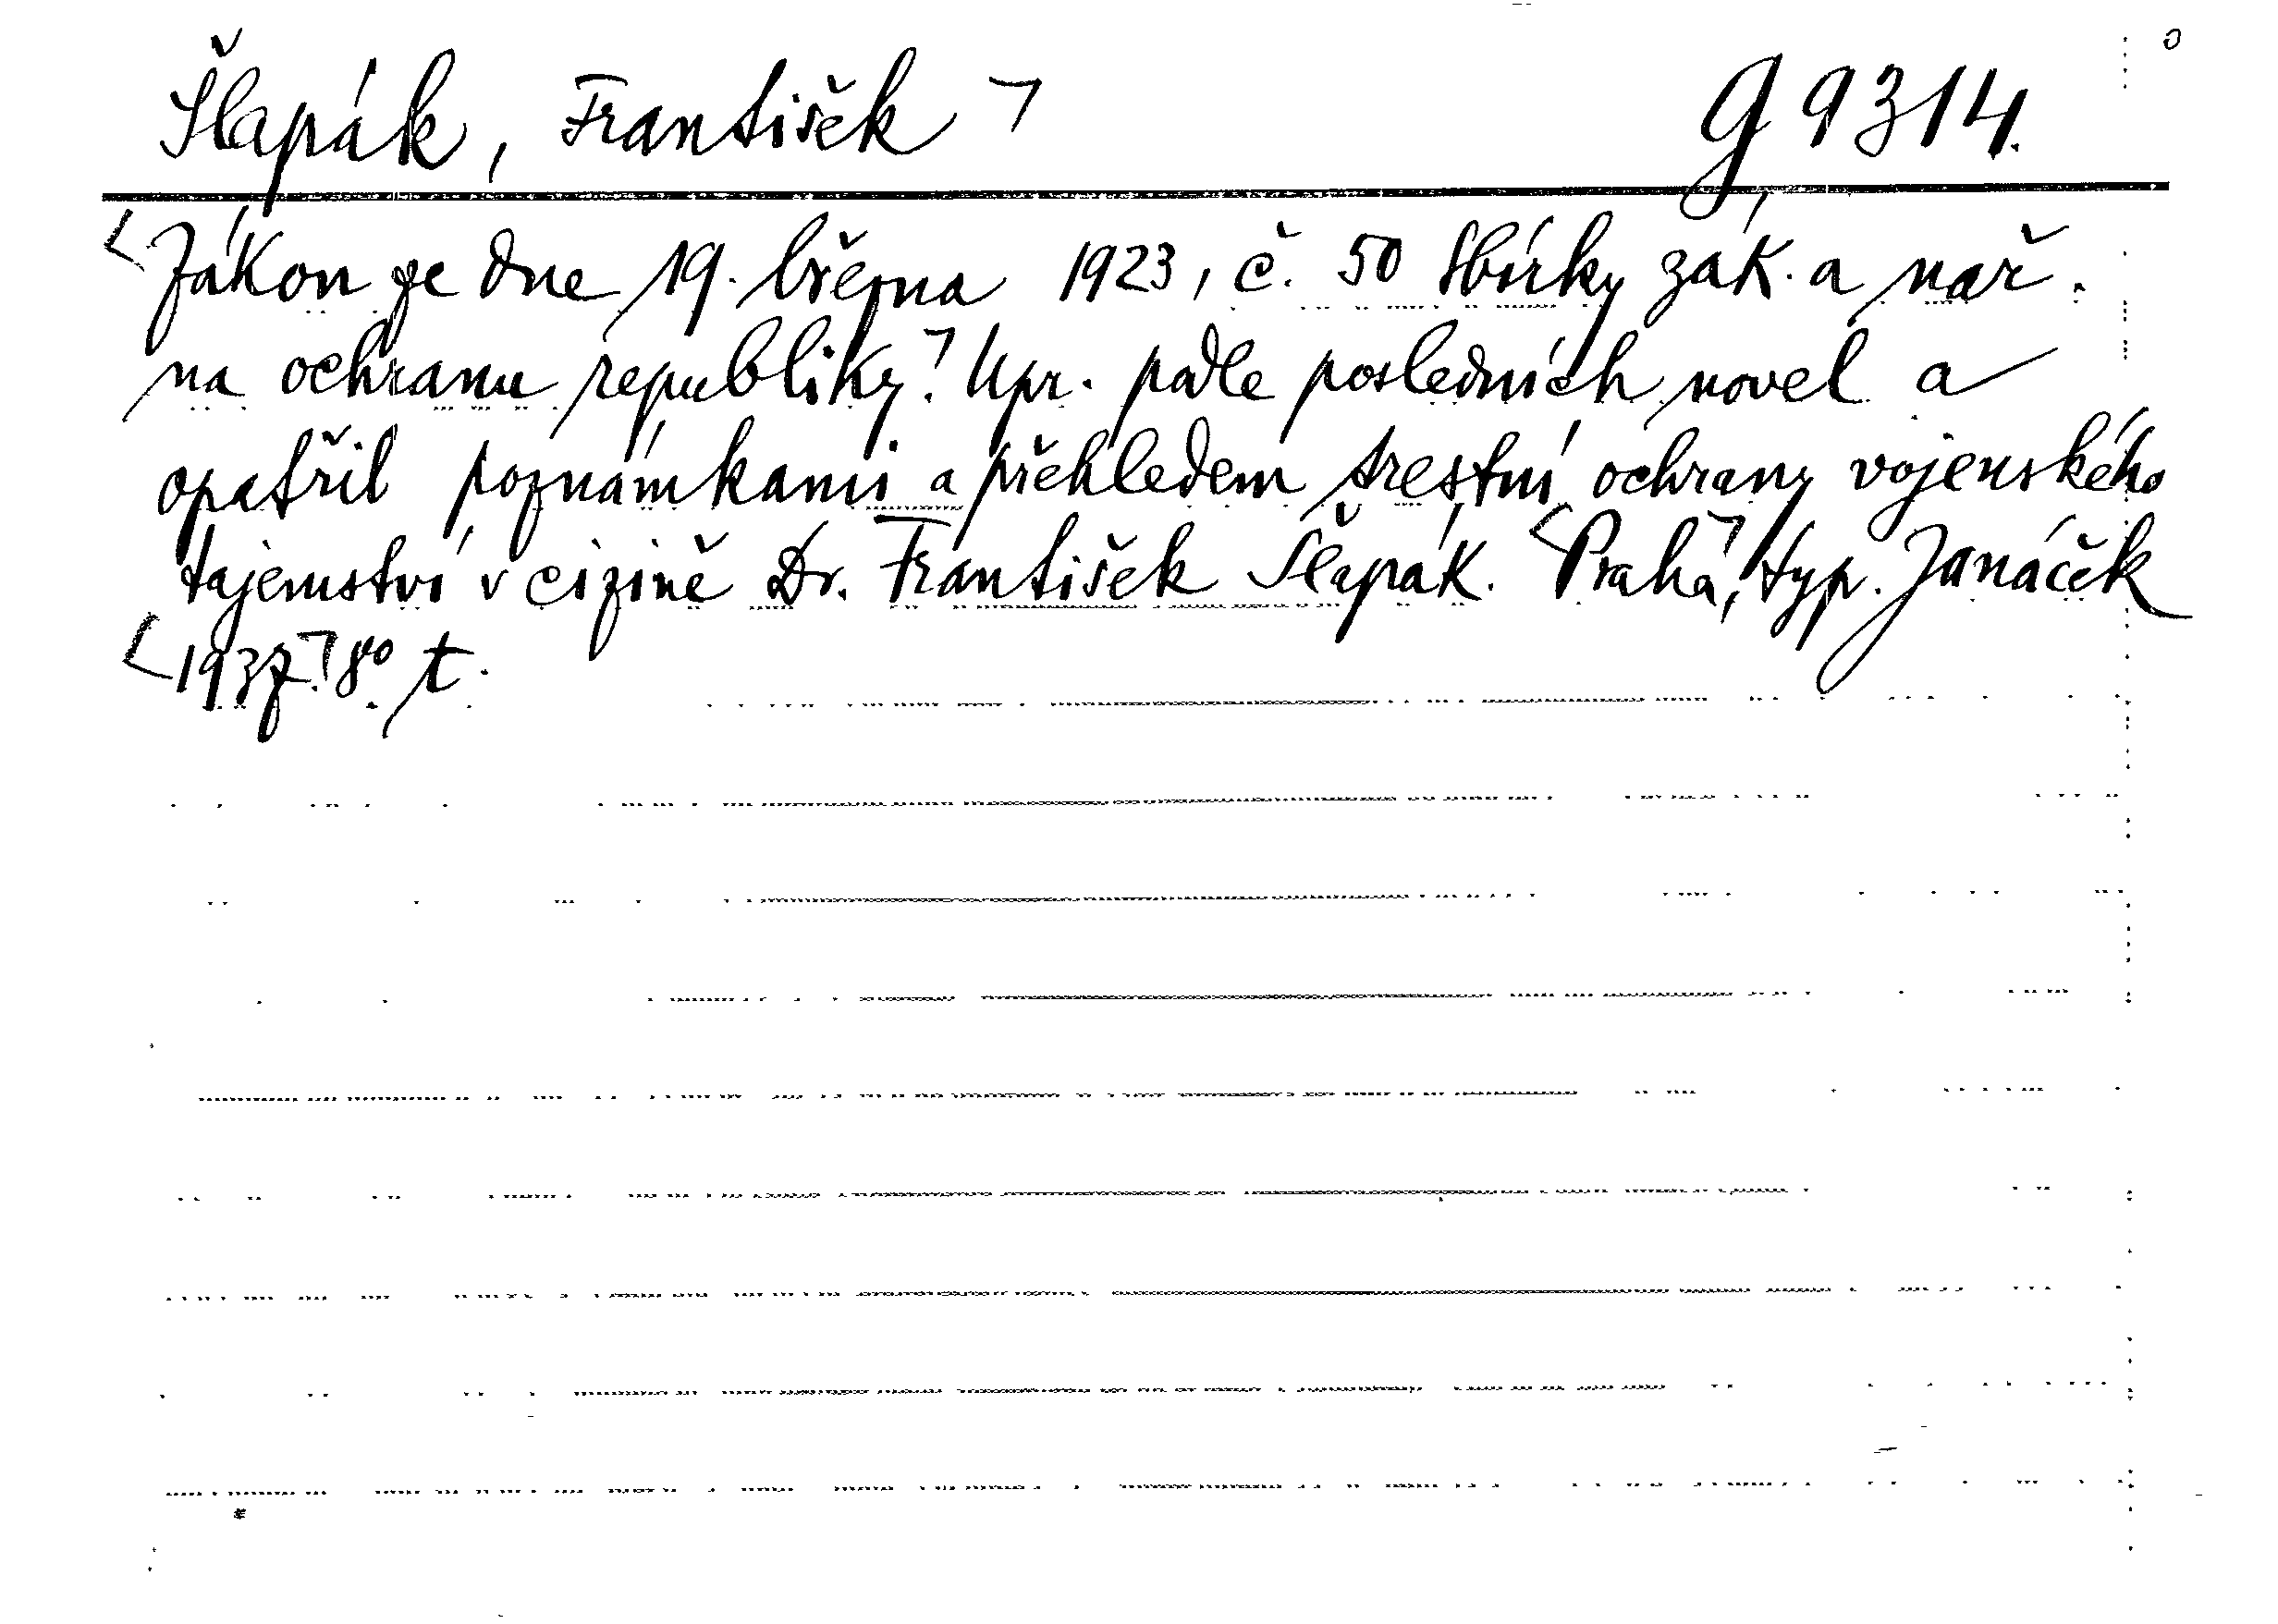 Šlapák, František G 9314.
Zákon ze dne 19. března 1923, č. 50 Sbírky zák. a nař.
na ochranu republiky. Upr. podle posledních novel a
opatřil poznámkami a přehledem trestní ochrany vojenského
tajemství v cizině Dr. František Šlapák. Praha, typ. Janáček
1937. 8° t.